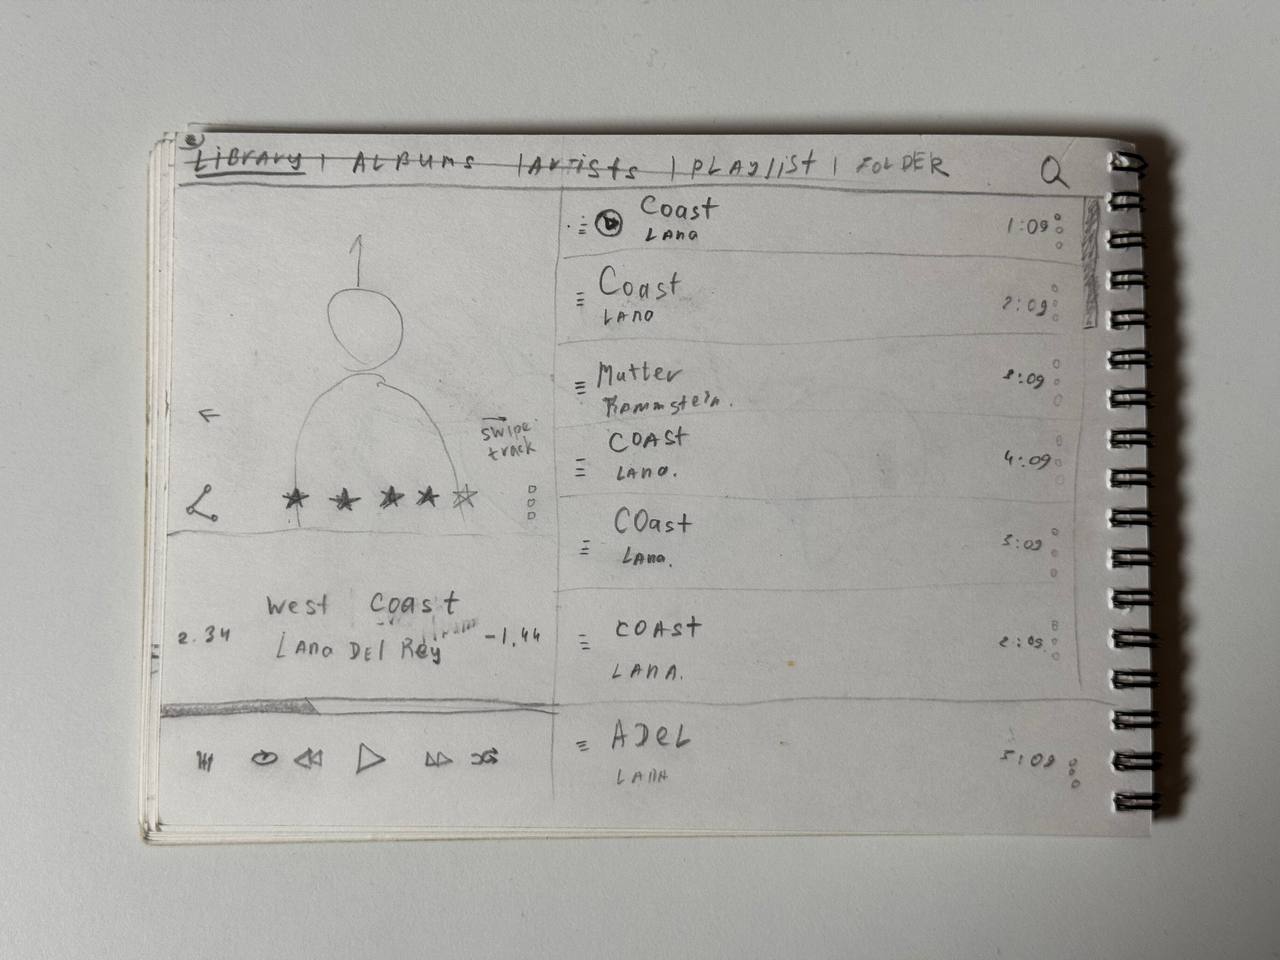 LIBRARY | ALBUMS | ARTISTS | PLAYLIST | FOLDER
Coast
LANA
1:09
Coast
LANA
2:09
Mutter
Rammstein.
:09
COAST
LANA.
4:09
COast
Lana.
:09
COAST
LANA.
ADEL
LANA
swipe
track
West Coast
2.34
Lana Del Rey
-1,44